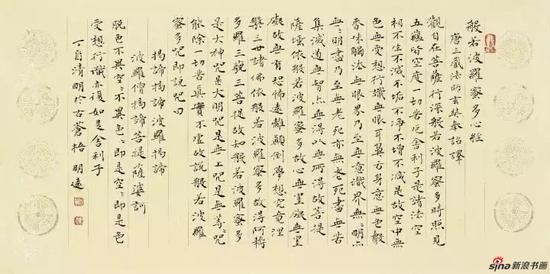 般若波羅蜜多心經
唐三藏法師玄奘奉詔譯
觀自在菩薩行深般若波羅蜜多時照見
五蘊皆空度一切苦厄舍利子是諸法空
相不生不滅不垢不淨不增不減是故空中無
色無受想行識無眼耳鼻舌身意無色聲
香味觸法無眼界乃至無意識界無々明亦
無々明盡乃至無老死亦無老死盡無苦
集滅道無智亦無得以無所得故菩提
薩埵依般若波羅蜜多故心無罣礙無罣
礙故無有恐怖遠離顛倒夢想究竟涅
槃三世諸佛依般若波羅蜜多故得阿耨
多羅三藐三菩提故知般若波羅蜜多
是大神咒是大明咒是無上咒是無等々咒
能除一切苦真實不虛故說般若波羅
蜜多咒即說咒曰
揭諦揭諦波羅揭諦
波羅僧揭諦菩提薩婆訶
脫色不異空々不異色々即是空々即是色
受想行識亦復如是舍利子
丁酉清明於古蒼梧 明遠
sina 新浪书画